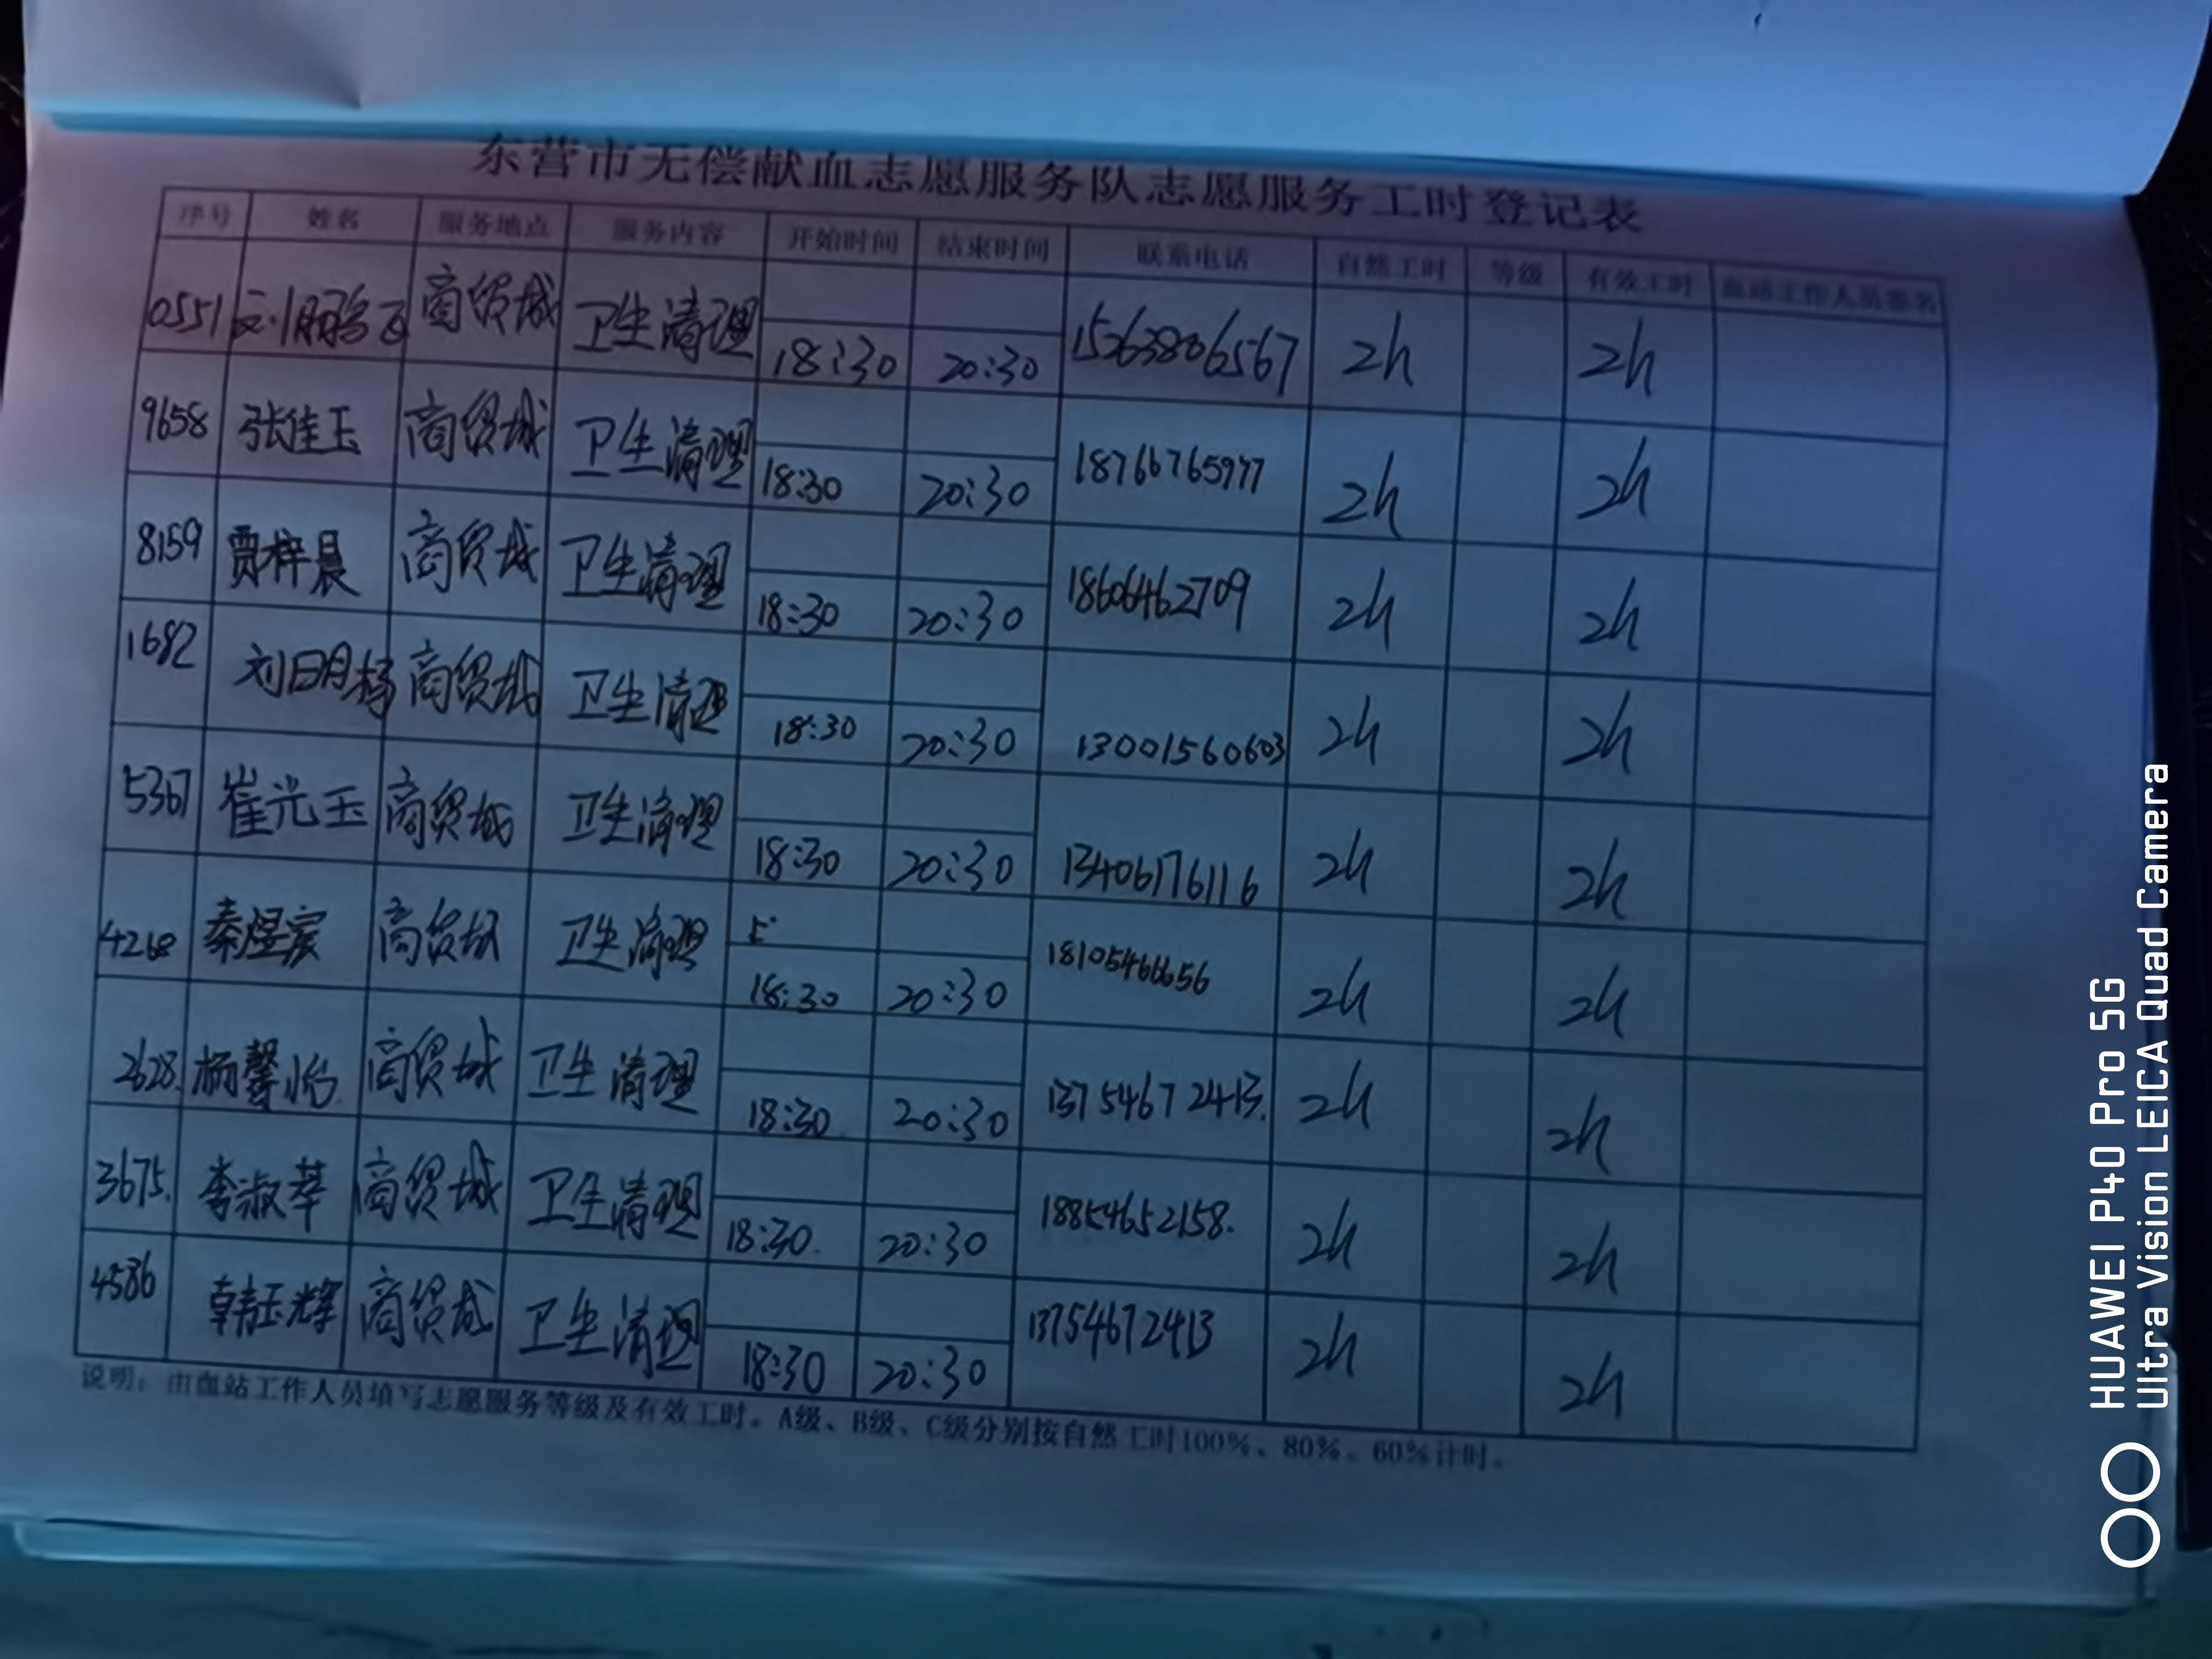 东营市无偿献血志愿服务队志愿服务工时登记表
序号 姓名 服务地点 服务内容 开始时间 结束时间 联系电话 自然工时 等级 有效工时 血站工作人员签名
0551 商贸城 卫生清理 18:30 20:30 15263806567 2h 2h
9658 张佳玉 商贸城 卫生清理 18:30 20:30 18766765977 2h 2h
8159 贾梓晨 商贸城 卫生清理 18:30 20:30 18606462709 2h 2h
1682 刘明杨 商贸城 卫生清理 18:30 20:30 13001560603 2h 2h
5367 崔光玉 商贸城 卫生清理 18:30 20:30 13406176116 2h 2h
4268 秦煜宸 商贸城 卫生清理 18:30 20:30 18105466656 2h 2h
2628. 杨馨怡. 商贸城 卫生清理 18:30. 20:30 13754672413. 2h 2h
3675. 李淑苹 商贸城 卫生清理 18:30. 20:30 18854652158. 2h 2h
4586 韩玉辉 商贸城 卫生清理 18:30 20:30 13754672413 2h 2h
说明：由血站工作人员填写志愿服务等级及有效工时。A级、B级、C级分别按自然工时100%、80%、60%计时。
HUAWEI P40 Pro 5G
Ultra Vision LEICA Quad Camera